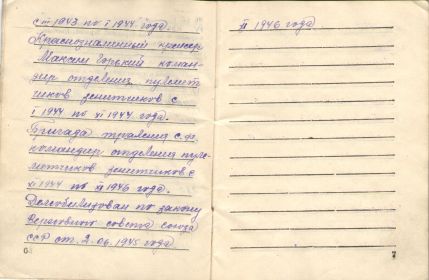 с III 1943 по I 1944 года.
Краснознаменный крейсер
Максим Горький коман-
дир отделения пулемет
чиков зенитчиков с
I 1944 по XI 1944 года.
Бригада траления с.ф.
командир отделения пуле-
метчиков зенитчиков с
XI 1944 по
1946 года.
Демобилизован по закону
Верховного совета союза
ССР от 2.06.1945 года
6
1946 года
7